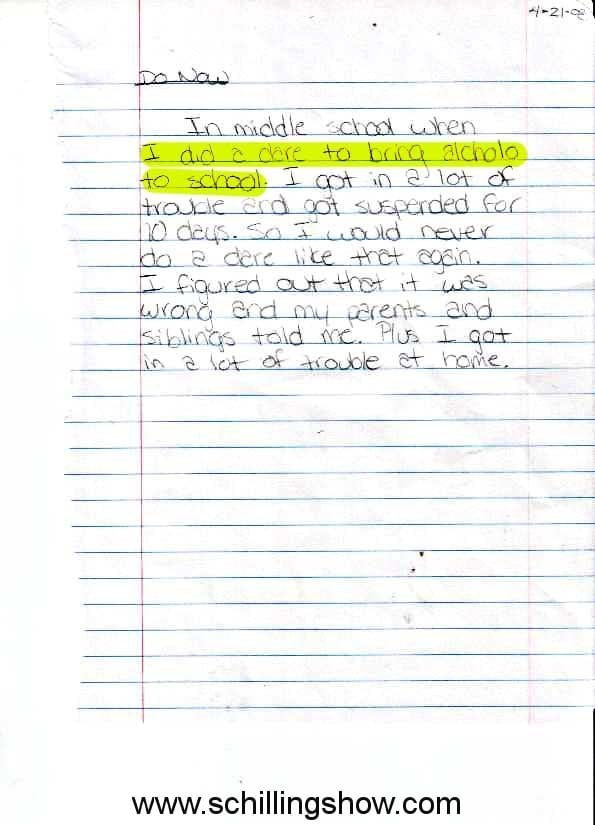 4-21-08
Do Now
In middle school when
I did a dare to bring alcholo
to school. I got in a lot of
trouble and got suspended for
10 days. So I would never
do a dare like that again.
I figured out that it was
wrong and my parents and
siblings told me. Plus I got
in a lot of trouble at home.
www.schillingshow.com